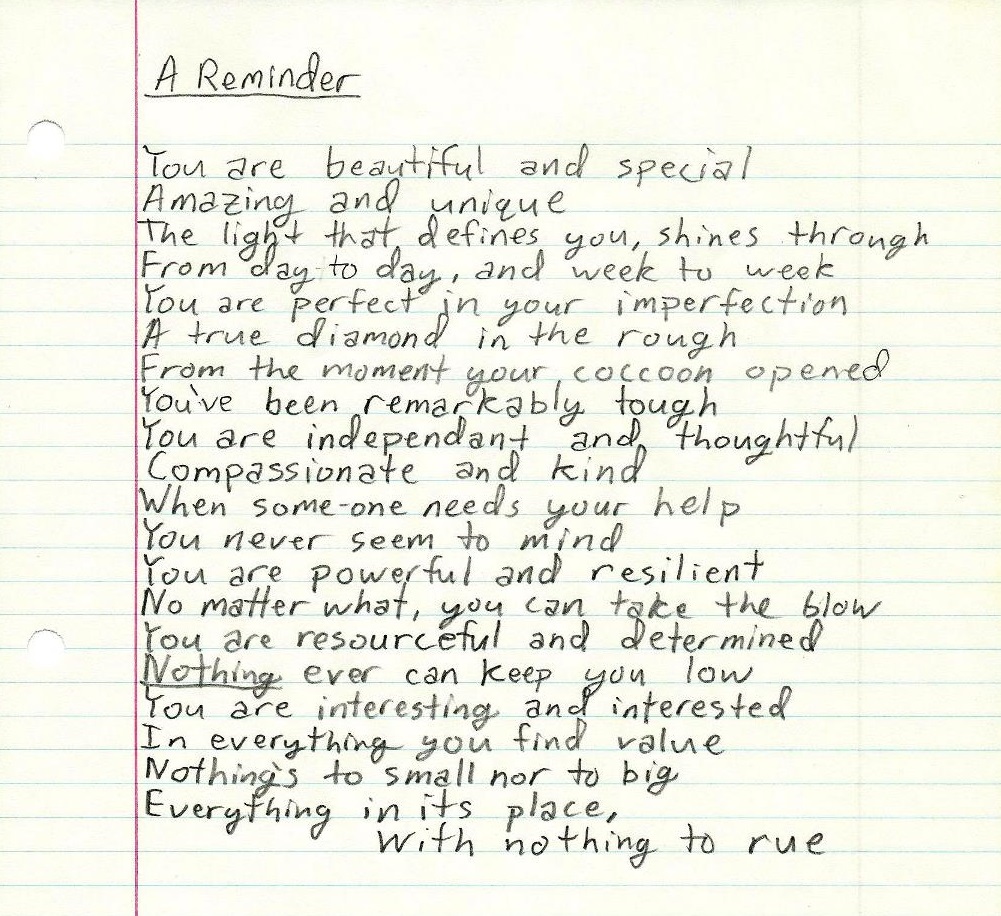 A Reminder
You are beautiful and special
Amazing and unique
The light that defines you, shines through
From day to day, and week to week
You are perfect in your imperfection
A true diamond in the rough
From the moment your coccoon opened
You've been remarkably tough
You are independant and thoughtful
Compassionate and kind
When some-one needs your help
You never seem to mind
You are powerful and resilient
No matter what, you can take the blow
You are resourceful and determined
Nothing ever can keep you low
You are interesting and interested
In everything you find value
Nothing's to small nor to big
Everything in its place,
With nothing to rue